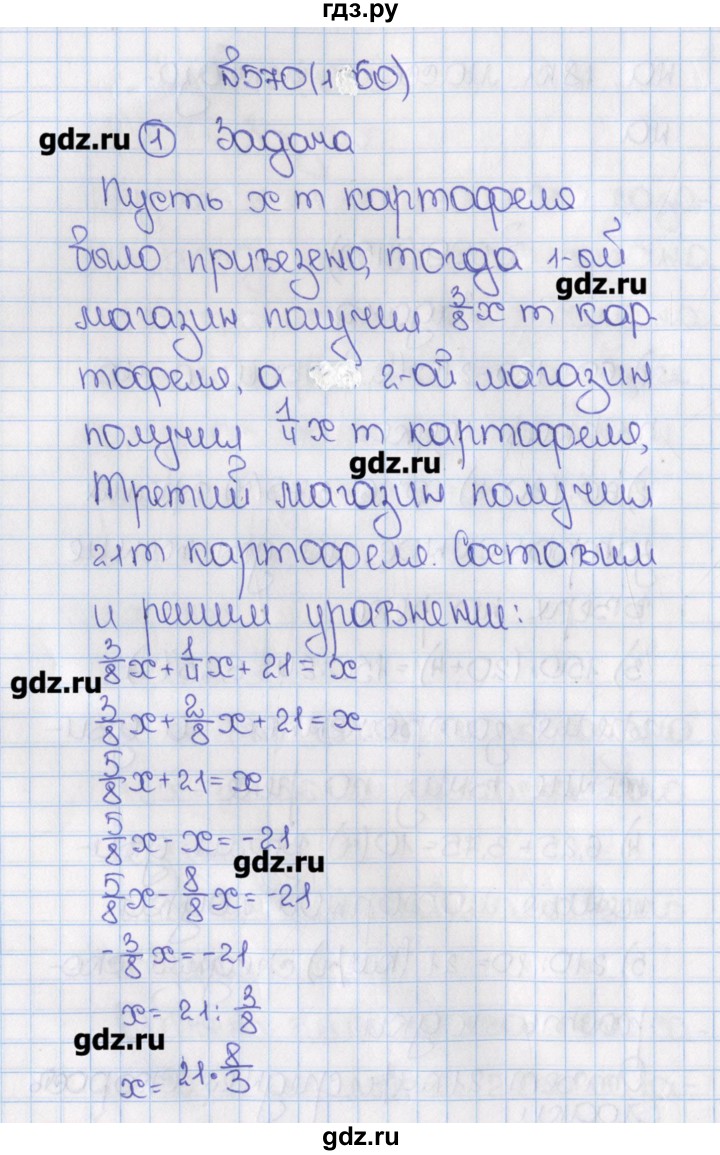 гдз.ру
№570(1 50)
gdz.ru
① Задача
Пусть x т картофеля
было привезено, тогда 1-ый
gdz.ru
магазин получил 3/8 x т кар-
тофеля, а 2-ой магазин
получил 1/4 x т картофеля,
gdz.ru
Третий магазин получил
21 т картофеля. Составим
и решим уравнение:
3/8 x + 1/4 x + 21 = x
gdz.ru
3/8 x + 2/8 x + 21 = x
5/8 x + 21 = x
5/8 x - x = -21
gdz.ru
5/8 x - 8/8 x = -21
-3/8 x = -21
x = 21 : 3/8
gdz.ru
x = 21 · 8/3
gdz.ru